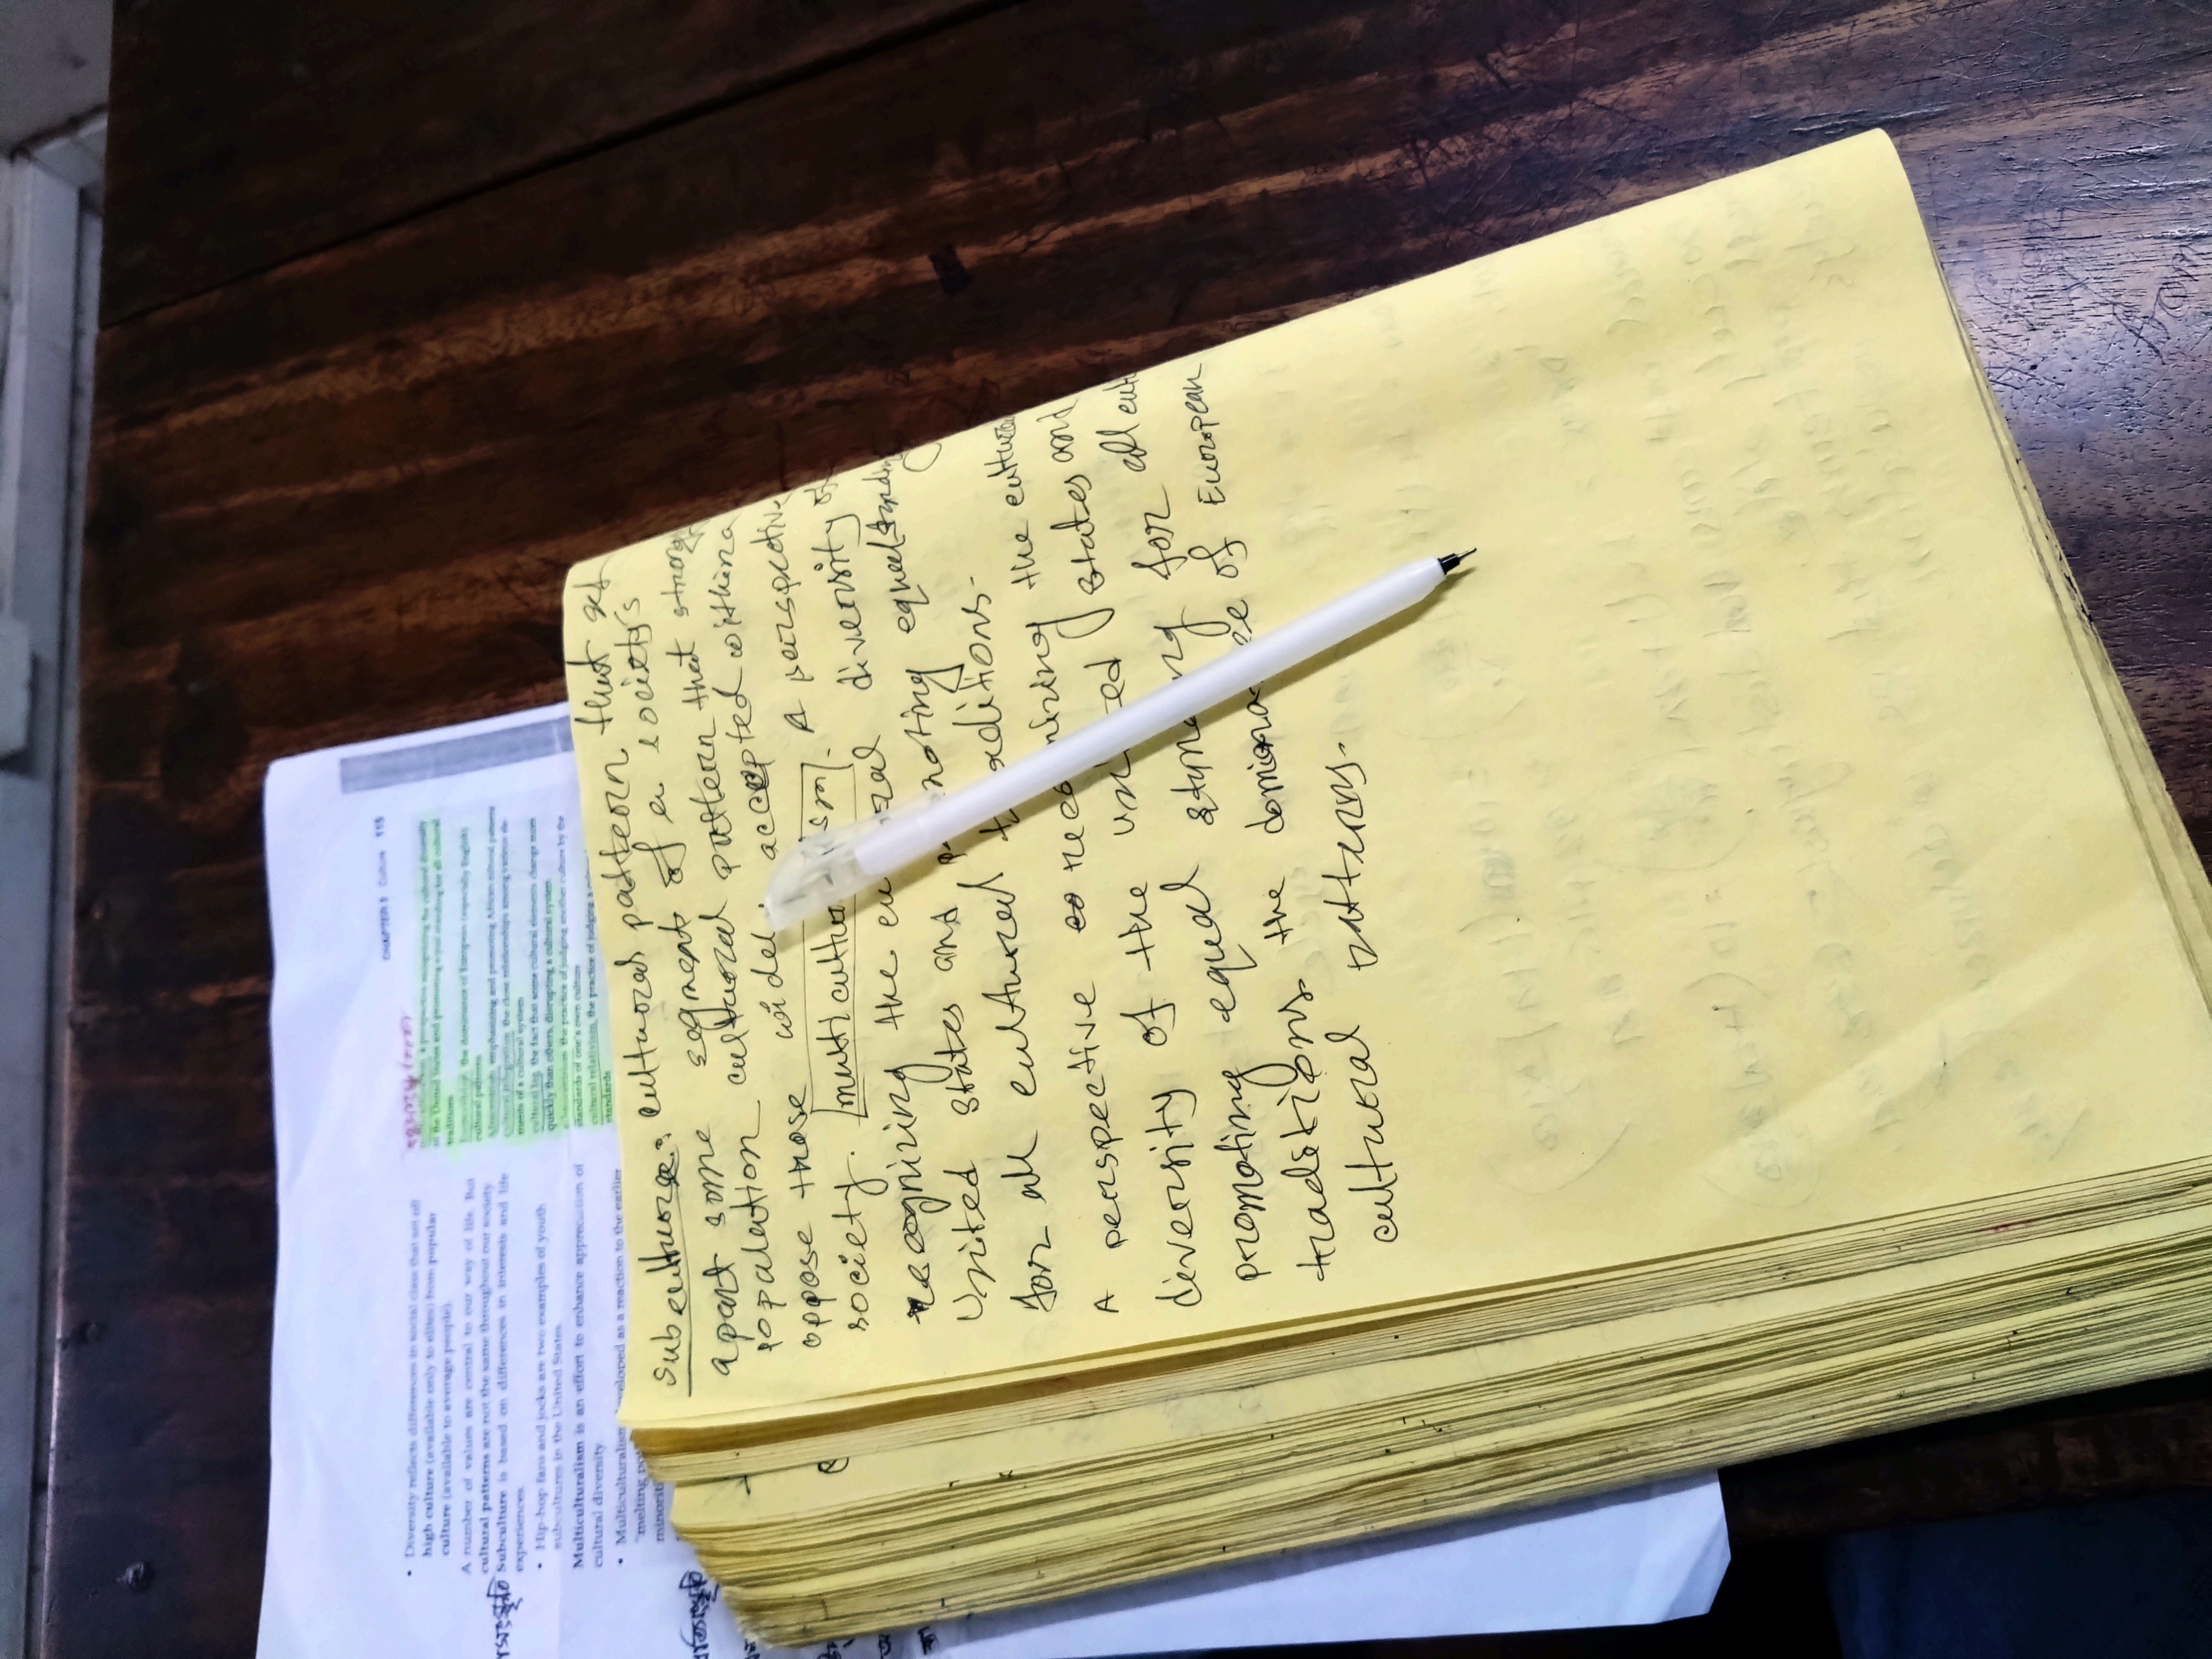 subculture: cultural pattern that set
apart some segment of a society's
population cultural pattern that strong
oppose those widel accepted within a
society. multicultu sm. A perspective
recognizing the cu ral diversity of
United States and p noting equal standing
for all cultural t aditions.
the cultural
A perspective recog nizing
diversity of the uni ed states and
promoting equal stand ng for all cult
traditions the domina ce of European
cultural patterns.
CHAPTER 3 Culture 115
• Diversity reflects differences in social class that set off
high culture (available only to elites) from popular
culture (available to average people).
A number of values are central to our way of life. But
cultural patterns are not the same throughout our society.
Subculture is based on differences in interests and life
experiences.
• Hip-hop fans and jocks are two examples of youth
subcultures in the United States.
Multiculturalism is an effort to enhance appreciation of
cultural diversity.
• Multiculturalism eveloped as a reaction to the earlier
"melting
minorit
a perspective recognizing the cultural diversity
of the United States and promoting equal standing for all cultural
traditions
the dominance of European (especially English)
cultural patterns
emphasizing and promoting African cultural patterns
the close relationships among various ele-
ments of a cultural system
cultural lag the fact that some cultural elements change more
quickly than others, disrupting a cultural system
the practice of judging another culture by the
standards of one's own culture
cultural relativism the practice of judging a
standards